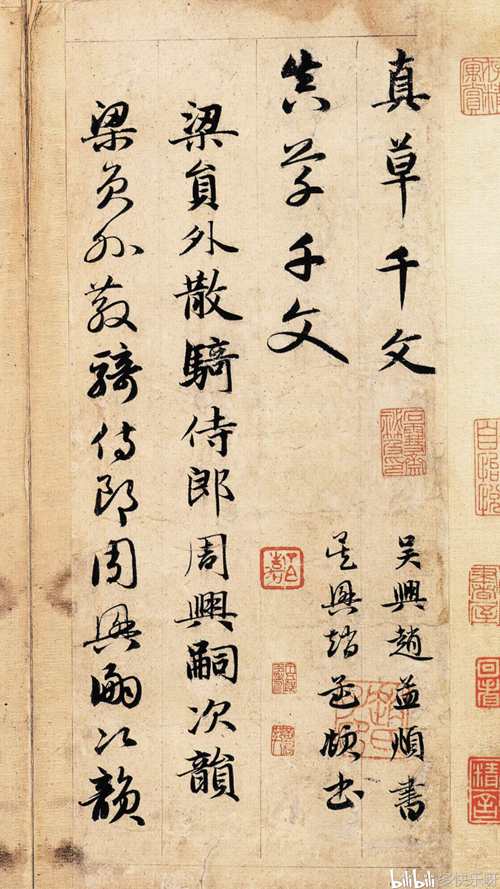 真草千文
吳興趙孟頫書
真草千文
吳興趙孟頫書
梁員外散騎侍郎周興嗣次韻
梁員外散騎侍郎周興嗣次韻
bilibili